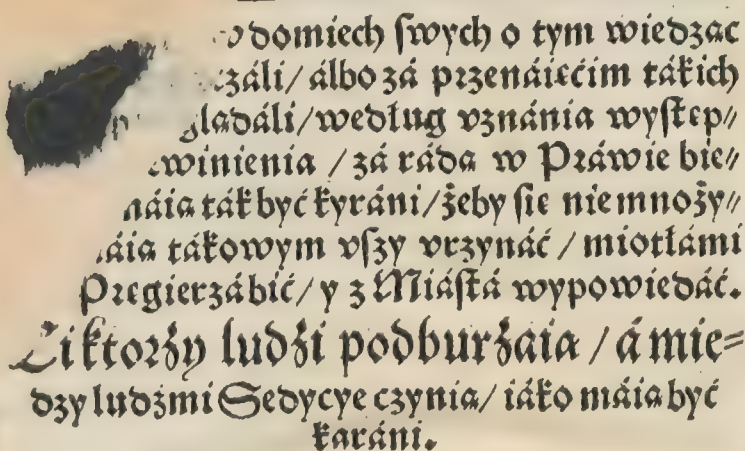 domiech ſwych o tym wiedząc
álbo zá przenáięćim tákich
według vznánia wyſtęp//
zá rádą w Práwie bie//
ták być kyráni/ żeby ſię niemnoży//
tákowym vſzy vrzynáć / miotłámi
Pręgierzá bić/ y z Miáſtá wypowiedáć.
Ci ktorzy ludźi podburzaią / á mię=
dzy ludźmi Sedycye czynią/ iáko máią być
karáni.